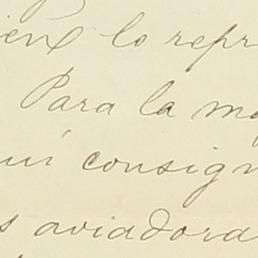 lo repr
Para la ma
consign
aviadora